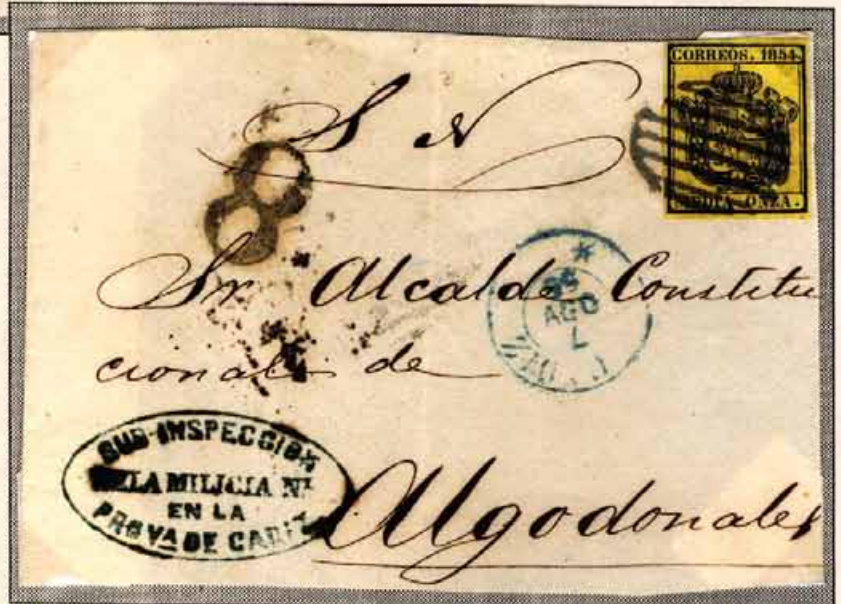 CORREOS. 1854.
MEDIA ONZA.
S N
8
Sr Alcalde Constitu
cional de
AGO
CADIZ
SUB-INSPECCION
DE LA MILICIA Nl
EN LA
PROVa DE CADIZ
Algodonales